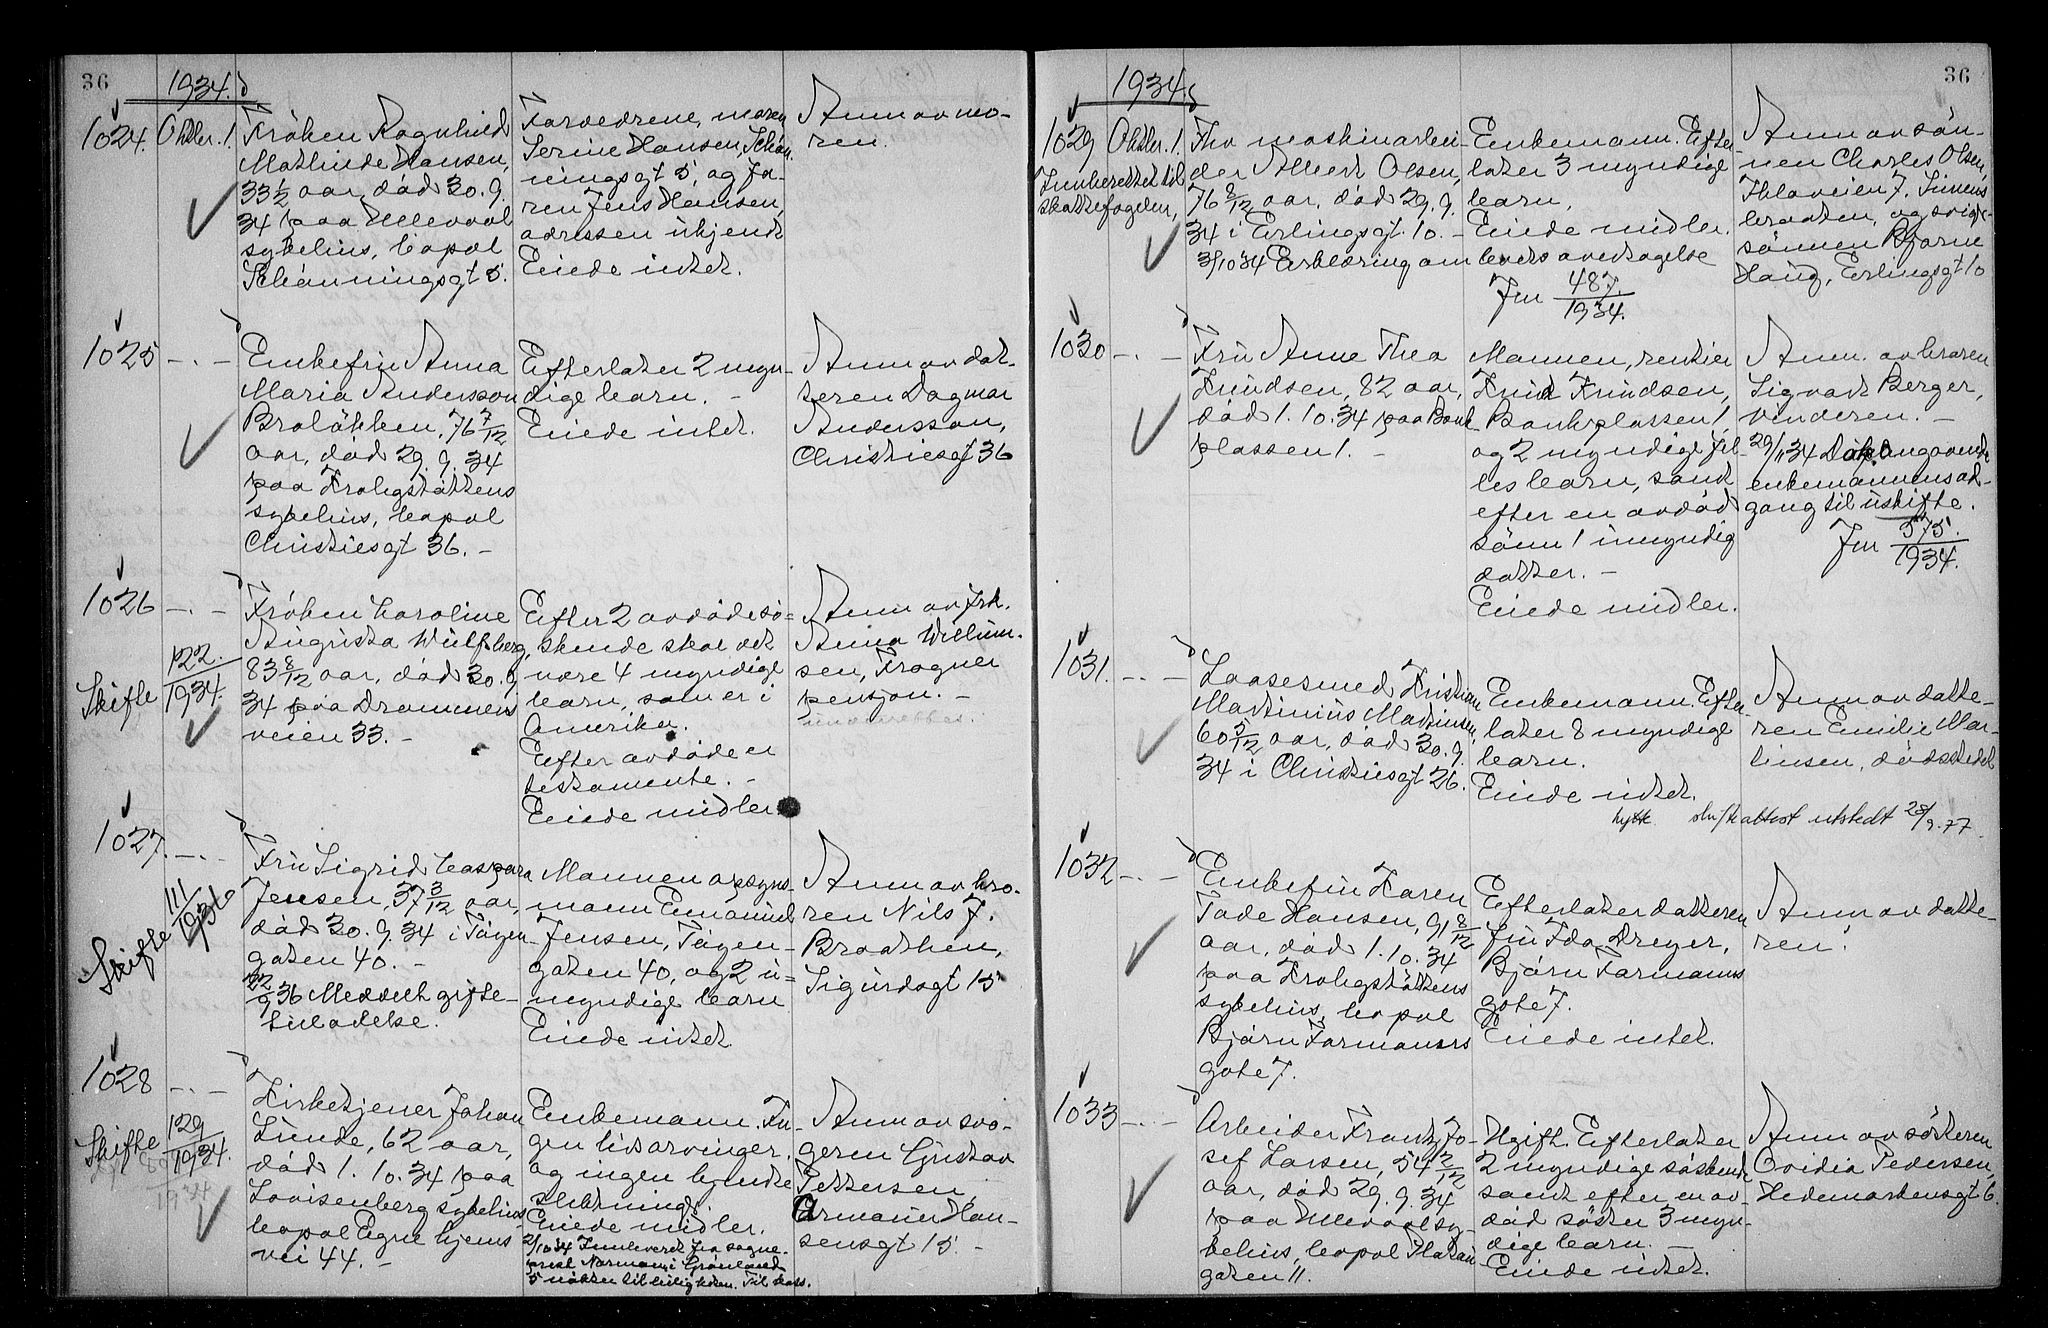 36
1934.
1024. Oktbr. 1.
Frøken Ragnhild
Mathilde Hansen,
33 1/2 aar, død 30.9.
34 paa Ullevaal
sykehus, bopæl
Schønningsgt 5.
Forældrene, moren
Serine Hansen, Schøn-
ningsgt 5, og fa-
ren Jens Hansen,
adressen ukjendt
Eiede intet.
Anm av mo-
ren.
1025 -.-
Enkefru Anna
Maria Andersson
Braløkken, 76 7/12
aar, død 29.9.34
paa Krohgstøttens
sykehus, bopæl
Christiesgt 36. -
Efterlater 2 myn-
dige barn. -
Eiede intet.
Anm av dat-
teren Dagmar
Andersson,
Christiesgt 36
1026 -.-
Skifte 122./1934.
Frøken Karoline
Augusta Wulfsberg,
83 8/12 aar, død 30.9
34 paa Drammens
veien 33. -
Efter 2 avdøde sø-
skende skal det
være 4 myndige
barn, som er i
Amerika.
Efter avdøde er
testamente. -
Eiede midler
Anm av frk.
Anna Willum-
sen, Frogner
pensjon. -
underrettes.
1027. -.-
Skifte 111/1936
Fru Sigrid Kaspara
Jensen, 37 3/12 aar,
død 30.9.34 i Tøyen-
gaten 40. -
22/9 36 Meddelt gifte-
tilladelse.
Mannen opsyns-
mann Emanuel
Jensen, Tøyen-
gaten 40, og 2 u-
myndige barn
Eiede intet
Anm av bro-
ren Nils J.
Braathen,
Sigurdsgt 15
1028 -.-
Skifte 129/1934.
Kirketjener Johan
Lunde, 62 aar,
død 1.10.34 paa
Lovisenberg sykehus
bopæl Egne hjems
vei 44. -
Enkemann. In-
gen livsarvinger,
og ingen kjendte
slektninger.
Eiede midler.
2/10 34 Innlevert fra sogne-
prest Normann i Grønland
5 nøkler til leiligheten. Til skss.
Anm av svo-
geren Gustav
Pettersen,
Armauer Han-
sensgt 15. -
36
1934.
1029 Oktbr. 1.
Innberettet til
skattefogden,
Fhv maskinarbei-
der Albert Olsen,
76 8/12 aar, død 29.9.
34 i Erlingsgt. 10. -
3/10 34 Erklæring om bevits overtagelse
Enkemann. Efter-
later 3 myndige
barn.
Eiede midler.
Jnr 487./1934.
Anm av søn-
nen Charles Olsen,
Thlaveien 7, Simens-
braaten, og sviger-
sønnen Bjarne
Haug, Erlingsgt 10
1030 -.-
Fru Anne Thea
Knudsen, 82 aar,
død 1.10.34 paa Bank
plassen 1. -
Mannen, rentier
Knud Knudsen,
Bankplassen 1,
og 2 myndige fel-
les barn, samt
efter en avdød
sønn 1 umyndig
datter. -
Eiede midler.
Anm. av broren
Sigvart Berger,
Vinderen. -
29/11 34 Dok. angaaende
enkemannens ad-
gang til uskifte.
Jnr 575./1934.
1031. -.-
Laasesmed Kristian
Martinius Martinsen,
60 5/12 aar, død 30.9.
34 i Christiesgt 26.
Enkemann. Efter-
later 8 myndige
barn.
Eiede intet.
Anm av datte-
ren Emilie Mar-
tinsen, dødsstedet
hytte skifteattest utstedt 28/9.77.
1032 -.-
Enkefru Karen
Tade Hansen, 91 8/12
aar, død 1.10.34
paa Krohgstøttens
sykehus, bopæl
Bjørn Farmanns
gate 7.
Efterlater datteren
fru Ida Dreyer,
Bjørn Farmanns
gate 7.
Eiede intet.
Anm av datte-
ren.
1033 -.-
Arbeider Frantz Jo-
sef Larsen, 54 2/12
aar, død 29.9.34
paa Ullevaal sy-
kehus, bopæl Platou
gaten 11.
Ugift. Efterlater
2 myndige søskende
samt efter en av-
død søster 3 myn-
dige barn. -
Eiede intet.
Anm av søsteren
Ovidia Pedersen,
Hedemarkensgt 6.